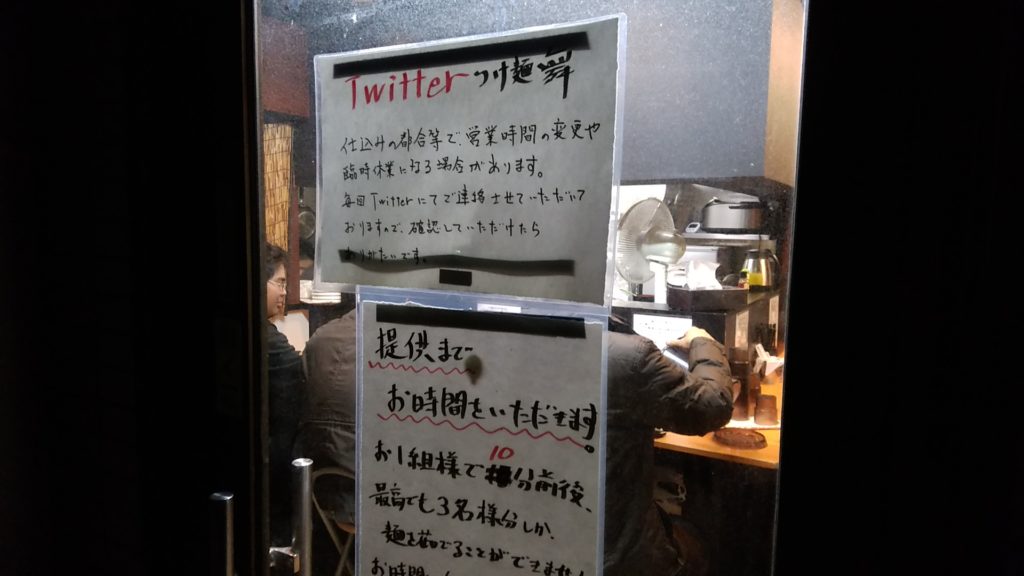 Twitter つけ麺 舞
仕込みの都合等で、営業時間の変更や
臨時休業になる場合があります。
毎回Twitterにてご連絡させていただいて
おりますので、確認していただけたら
ありがたいです。
提供まで
お時間をいただきます。
お1組様で10分前後、
最高でも3名様分しか、
麺を茹でることができません
お時間